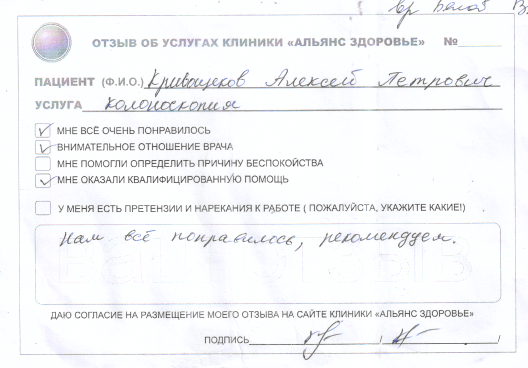 вр Белов В.
ОТЗЫВ ОБ УСЛУГАХ КЛИНИКИ «АЛЬЯНС ЗДОРОВЬЕ» №
ПАЦИЕНТ (Ф.И.О.) Кривощеков Алексей Петрович
УСЛУГА Колоноскопия
МНЕ ВСЁ ОЧЕНЬ ПОНРАВИЛОСЬ
ВНИМАТЕЛЬНОЕ ОТНОШЕНИЕ ВРАЧА
МНЕ ПОМОГЛИ ОПРЕДЕЛИТЬ ПРИЧИНУ БЕСПОКОЙСТВА
МНЕ ОКАЗАЛИ КВАЛИФИЦИРОВАННУЮ ПОМОЩЬ
У МЕНЯ ЕСТЬ ПРЕТЕНЗИИ И НАРЕКАНИЯ К РАБОТЕ ( ПОЖАЛУЙСТА, УКАЖИТЕ КАКИЕ!)
Нам всё понравилось, рекомендуем.
ДАЮ СОГЛАСИЕ НА РАЗМЕЩЕНИЕ МОЕГО ОТЗЫВА НА САЙТЕ КЛИНИКИ «АЛЬЯНС ЗДОРОВЬЕ»
ПОДПИСЬ / /